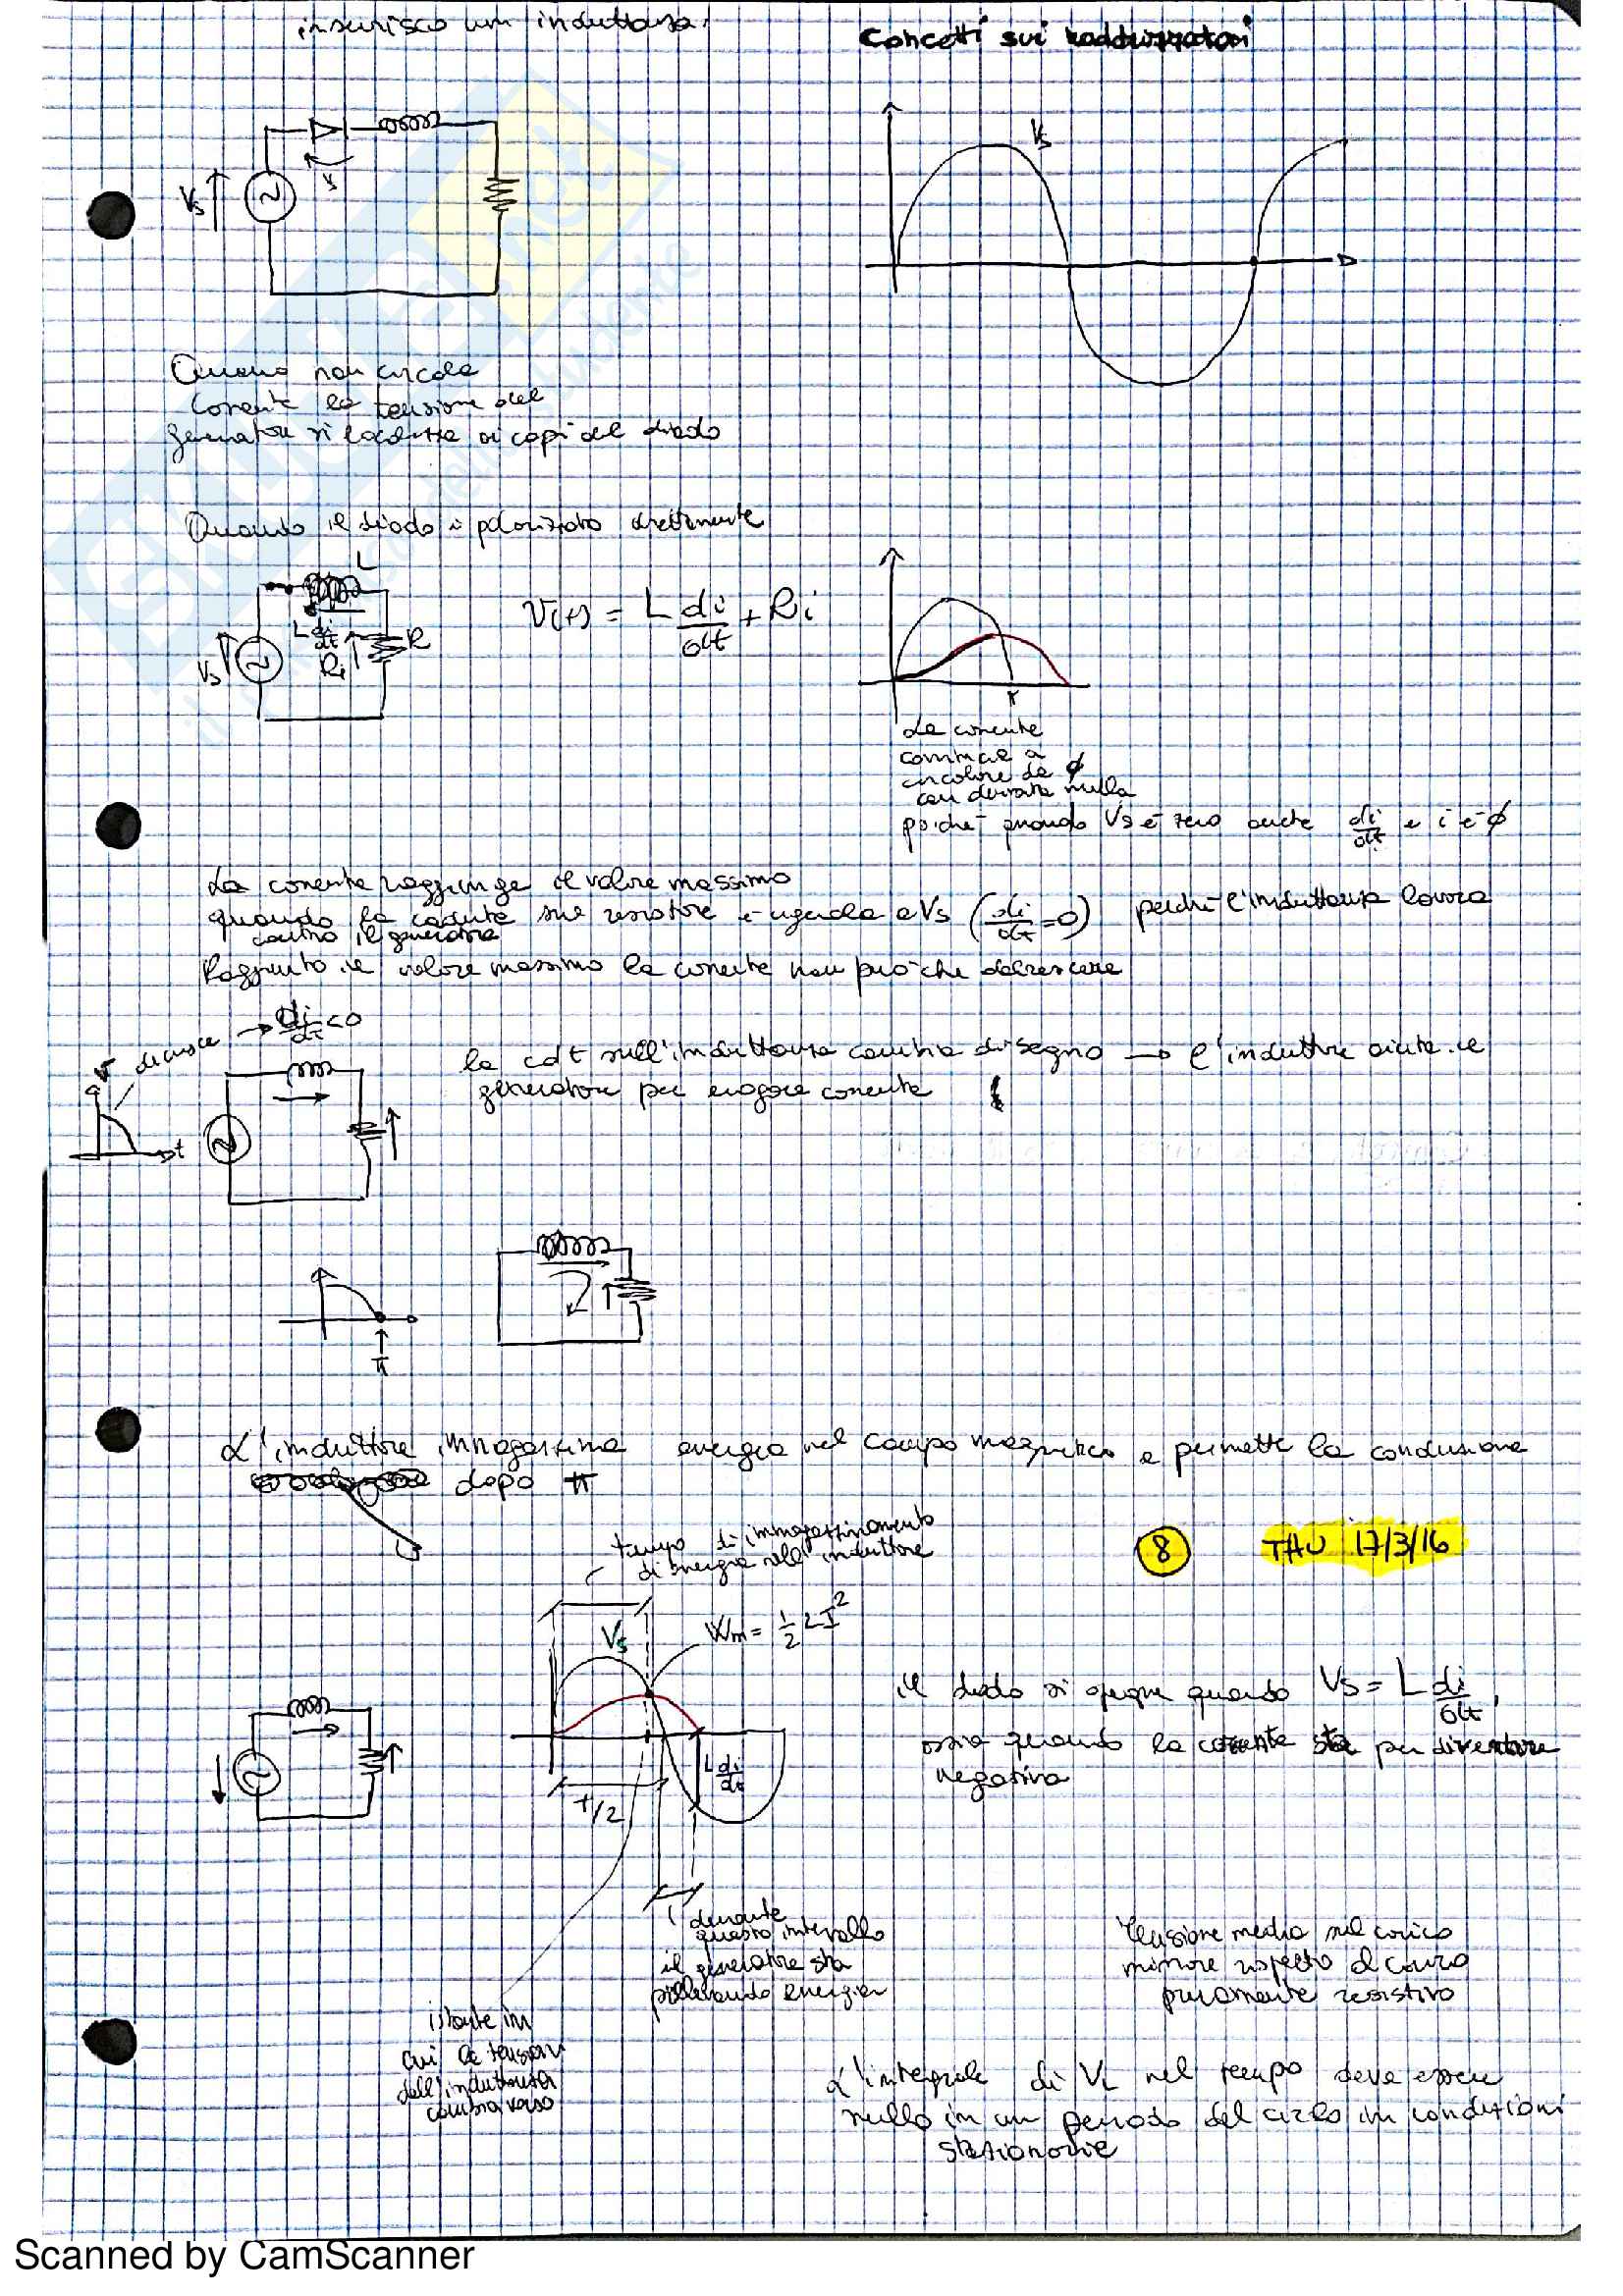 inserisco un induttanza.
Concetti sui raddrizzatori
Vs
Vs
Quando non circola
corrente la tensione del
generatore si localizza ai capi del diodo
Quando il diodo è polarizzato direttamente
L
L di/dt
Ri
R
Vs
V(t) = L di/dt + Ri
π
La corrente
comincia a
circolare da ϕ
con derivata nulla
poichè quando Vs è zero anche di/dt e i è ϕ
La corrente raggiunge il valore massimo
quando la caduta sul resistore è uguale a Vs (di/dt = 0) perchè l'induttanza lavora
contro il generatore
Raggiunto il valore massimo la corrente non può che decrescere
V decresce → di/dt < 0
t
la cdt sull'induttanza cambia di segno → l'induttore aiuta il
generatore per erogare corrente
π
L'induttore immagazzina energia nel campo magnetico e permette la conduzione
dopo π
tempo di immagazzinamento
di energia nell'induttore
8 THU 17/3/16
Vs
Wm = 1/2 LI²
L di/dt
T/2
il diodo si spegne quando Vs = L di/dt,
ossia quando la corrente sta per diventare
negativa
durante
questo intervallo
il generatore sta
prelevando energia
Tensione media sul carico
minore rispetto al carico
puramente resistivo
istante in
cui la tensione
dell'induttanza
cambia verso
L'integrale di VL nel tempo deve essere
nullo in un periodo del ciclo in condizioni
stazionarie
Scanned by CamScanner